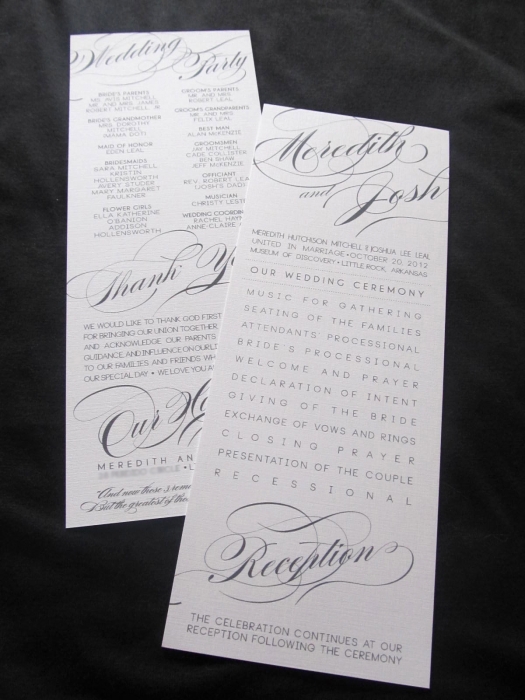 Wedding Party
BRIDE'S PARENTS
MR. AND MRS. JAMES
BRIDE'S GRANDMOTHER
MRS. DOROTHY
MITCHELL
MAID OF HONOR
EDEN LEAL
BRIDESMAIDS
SARA MITCHELL
KRISTIN
HOLLENSWORTH
AVERY STUDER
MARY MARGARET
FAULKNER
FLOWER GIRLS
ELLA KATHERINE
O'BANION
ADDISON
HOLLENSWORTH
GROOM'S PARENTS
MR. AND MRS.
ROBERT LEAL
GROOM'S GRANDPARENTS
MR. AND MRS.
FELIX LEAL
BEST MAN
ALAN MCKENZIE
GROOMSMEN
JAY MITCHELL
CADE COLLISTER
BEN SHAW
JEFF MCKENZIE
OFFICIANT
REV. ROBERT LEA
(JOSH'S DAD)
MUSICIAN
CHRISTY LEST
WEDDING COORDIN
RACHEL HAY
ANNE-CLAIRE
Thank Yo
WE WOULD LIKE TO THANK GOD FIRST
FOR BRINGING OUR UNION TOGETHER,
AND ACKNOWLEDGE OUR PARENTS
GUIDANCE, AND INFLUENCE ON OUR LI
TO OUR FAMILIES AND FRIENDS WH
OUR SPECIAL DAY • WE LOVE YOU A
Our Ho
MEREDITH AN
CIRCLE • L
And now these 3 rema
But the greatest of the
Meredith
and Josh
MEREDITH HUTCHISON MITCHELL & JOSHUA LEE LEAL
UNITED IN MARRIAGE • OCTOBER 20, 2012
MUSEUM OF DISCOVERY • LITTLE ROCK, ARKANSAS
OUR WEDDING CEREMONY
MUSIC FOR GATHERING
SEATING OF THE FAMILIES
ATTENDANTS' PROCESSIONAL
BRIDE'S PROCESSIONAL
WELCOME AND PRAYER
DECLARATION OF INTENT
GIVING OF THE BRIDE
EXCHANGE OF VOWS AND RINGS
CLOSING PRAYER
PRESENTATION OF THE COUPLE
RECESSIONAL
Reception
THE CELEBRATION CONTINUES AT OUR
RECEPTION FOLLOWING THE CEREMONY